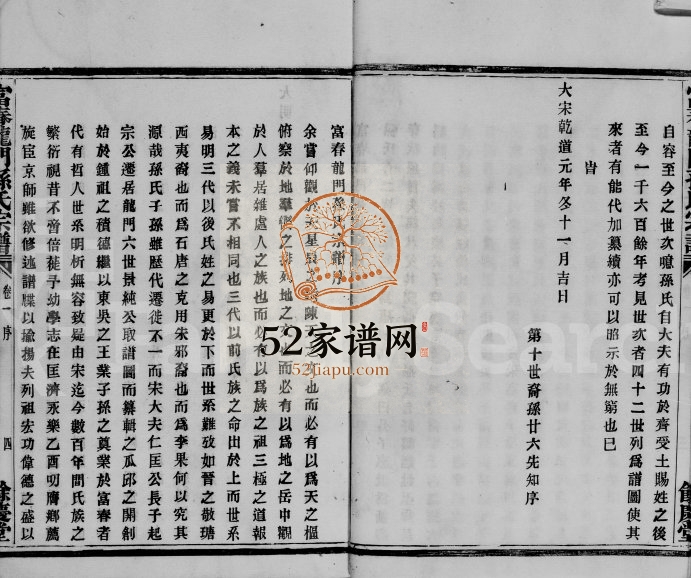 自容至今之世次噫孫氏自大夫有功於齊受土賜姓之後
至今一千六百餘年考見世次者四十二世列為譜圖使其
來者有能代加纂續亦可以昭示於無窮也巳
旹
大宋乾道元年冬十一月吉日
第十世裔孫廿六先知序
富春龍門孫氏宗譜序
余嘗仰觀於天星辰之陳天之文也而必有以為天之樞
俯察於地羣嶽之排列地之文也而必有以為地之岳中觀
於人羣居雜處人之族也而必有以為族之祖三極之道報
本之義未嘗不相同也三代以前氏族之命出於上而世系
易明三代以後氏姓之易更於下而世系難攷如晉之敬瑭
西夷裔也而為石唐之克用朱邪裔也而為李果何以究其
源哉孫氏子孫雖歷代遷徙不一而宋大夫仁匡公長子起
宗公遷居龍門六世景純公取譜圖而纂輯之瓜邱之開創
始於鍾祖之積德繼以東吳之王業子孫之奠業於富春者
代有哲人世系明析無容致疑由宋迄今數百年間氏族之
繁衍視昔不啻倍蓰予幼學志在匡濟永樂乙酉叨膺鄉薦
旋宦京師雖欲修述譜牒以揄揚夫列祖宏功偉德之盛以
富春龍門孫氏宗譜
卷一 序
四
餘慶堂
52家谱网
52jiapu.com